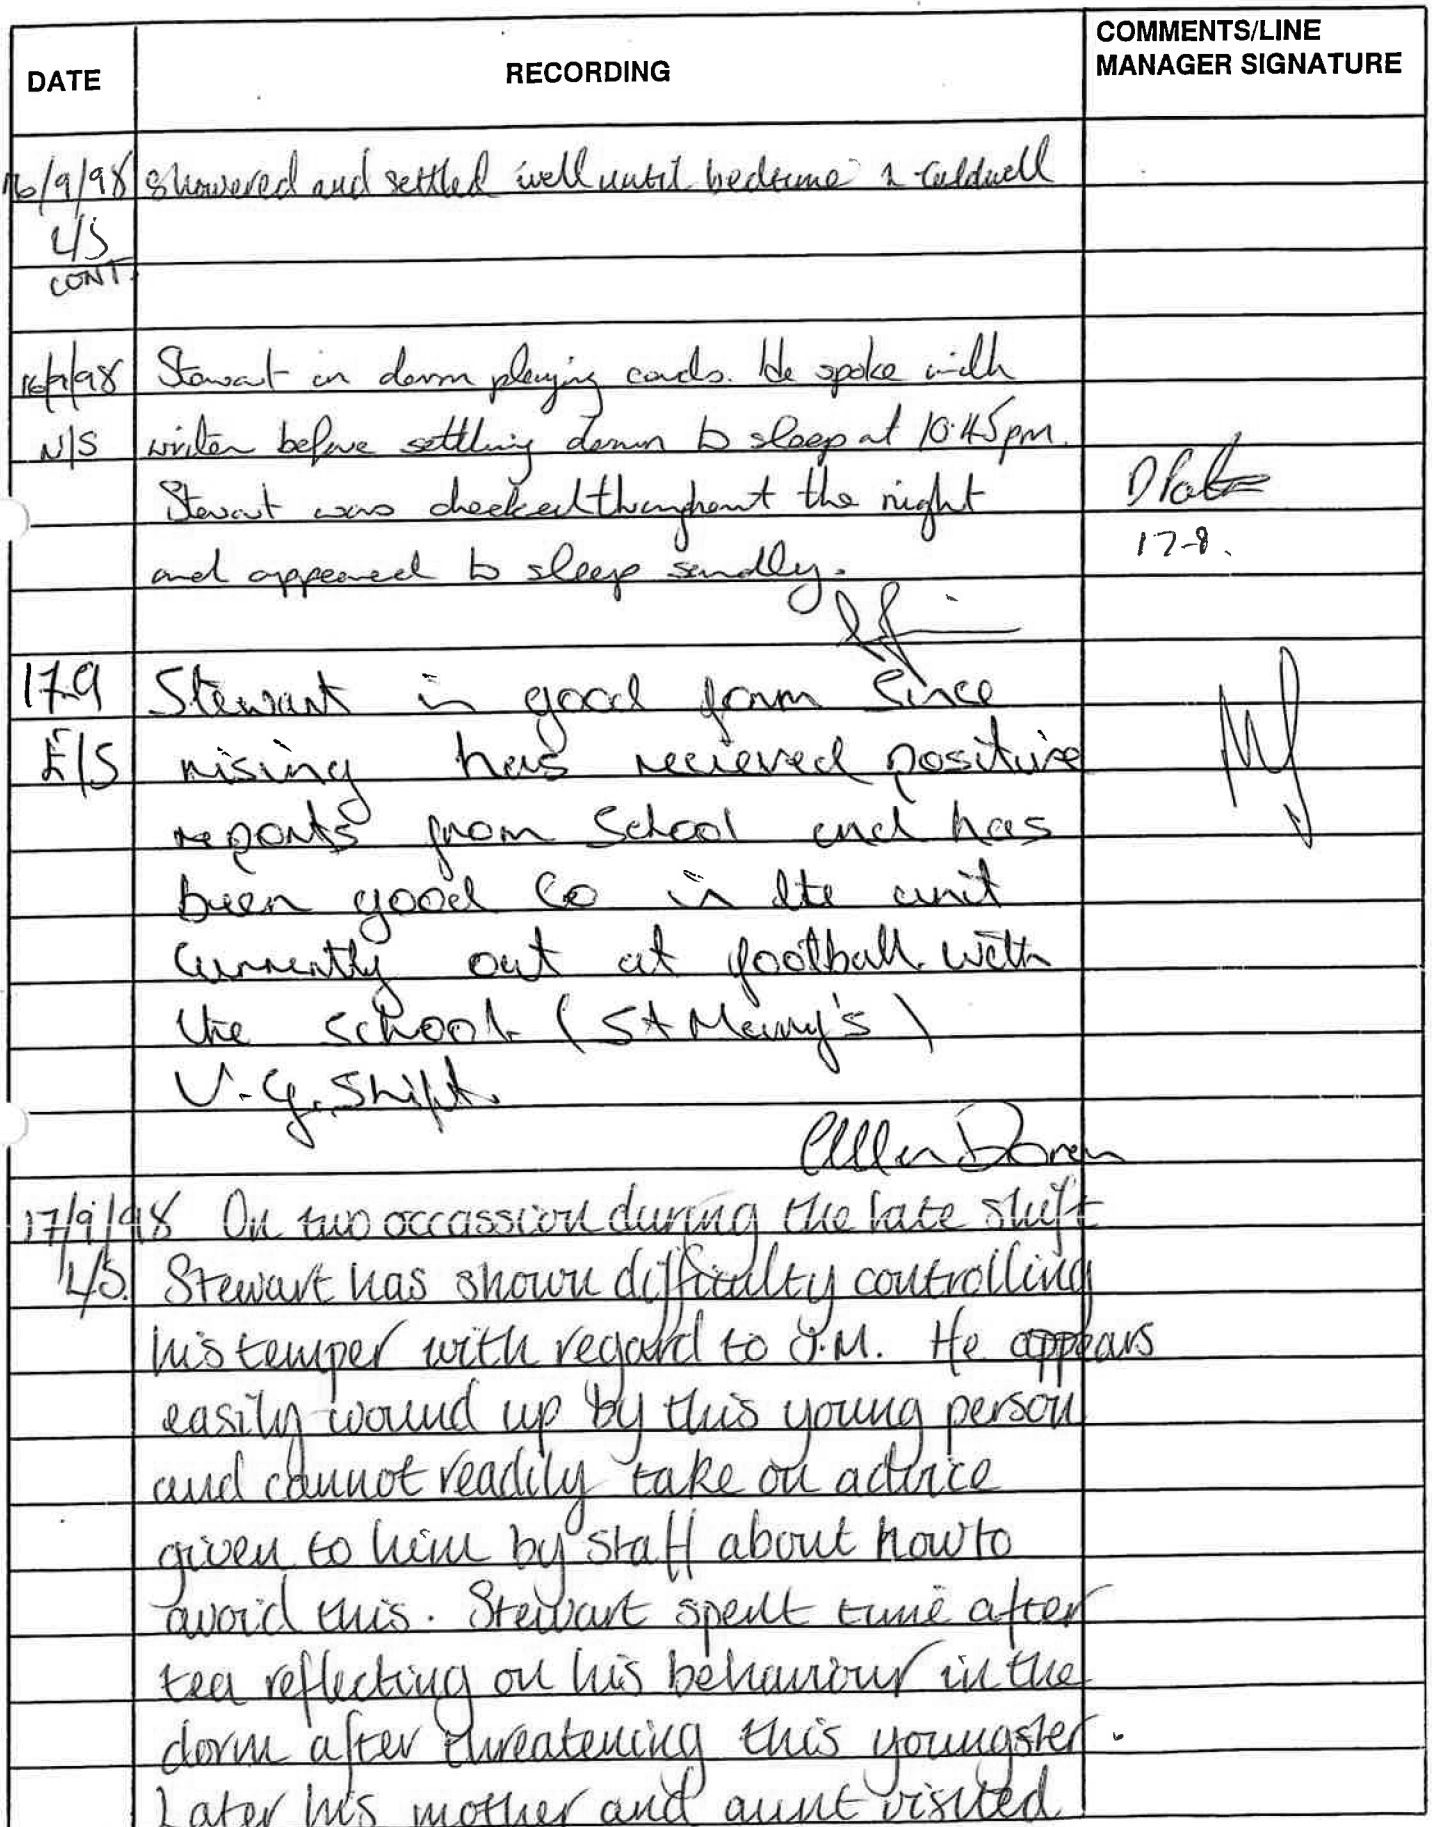 DATE
RECORDING
COMMENTS/LINE
MANAGER SIGNATURE
16/9/98 showered and settled well until bedtime Caldwell
L/S
CONT.
16/9/98 Stewart in dorm playing cards. He spoke with
N/S writer before settling down to sleep at 10.45pm.
Stewart was checked throughout the night
17-9.
and appeared to sleep soundly.
17.9 Stewart in good form since
E/S rising has recieved positive
reports from School and has
been good Co in the unit
Currently out at football with
the school (St Mary's)
V.G. Shift.
Allen Doren
17/9/98 On two occassion during the late shift
L/S. Stewart has shown difficulty controlling
his temper with regard to J.M. He appears
easily wound up by this young person
and cannot readily take on advice
given to him by staff about how to
avoid this. Stewart spent time after
tea reflecting on his behaviour in the
dorm after threatening this youngster.
Later his mother and aunt visited